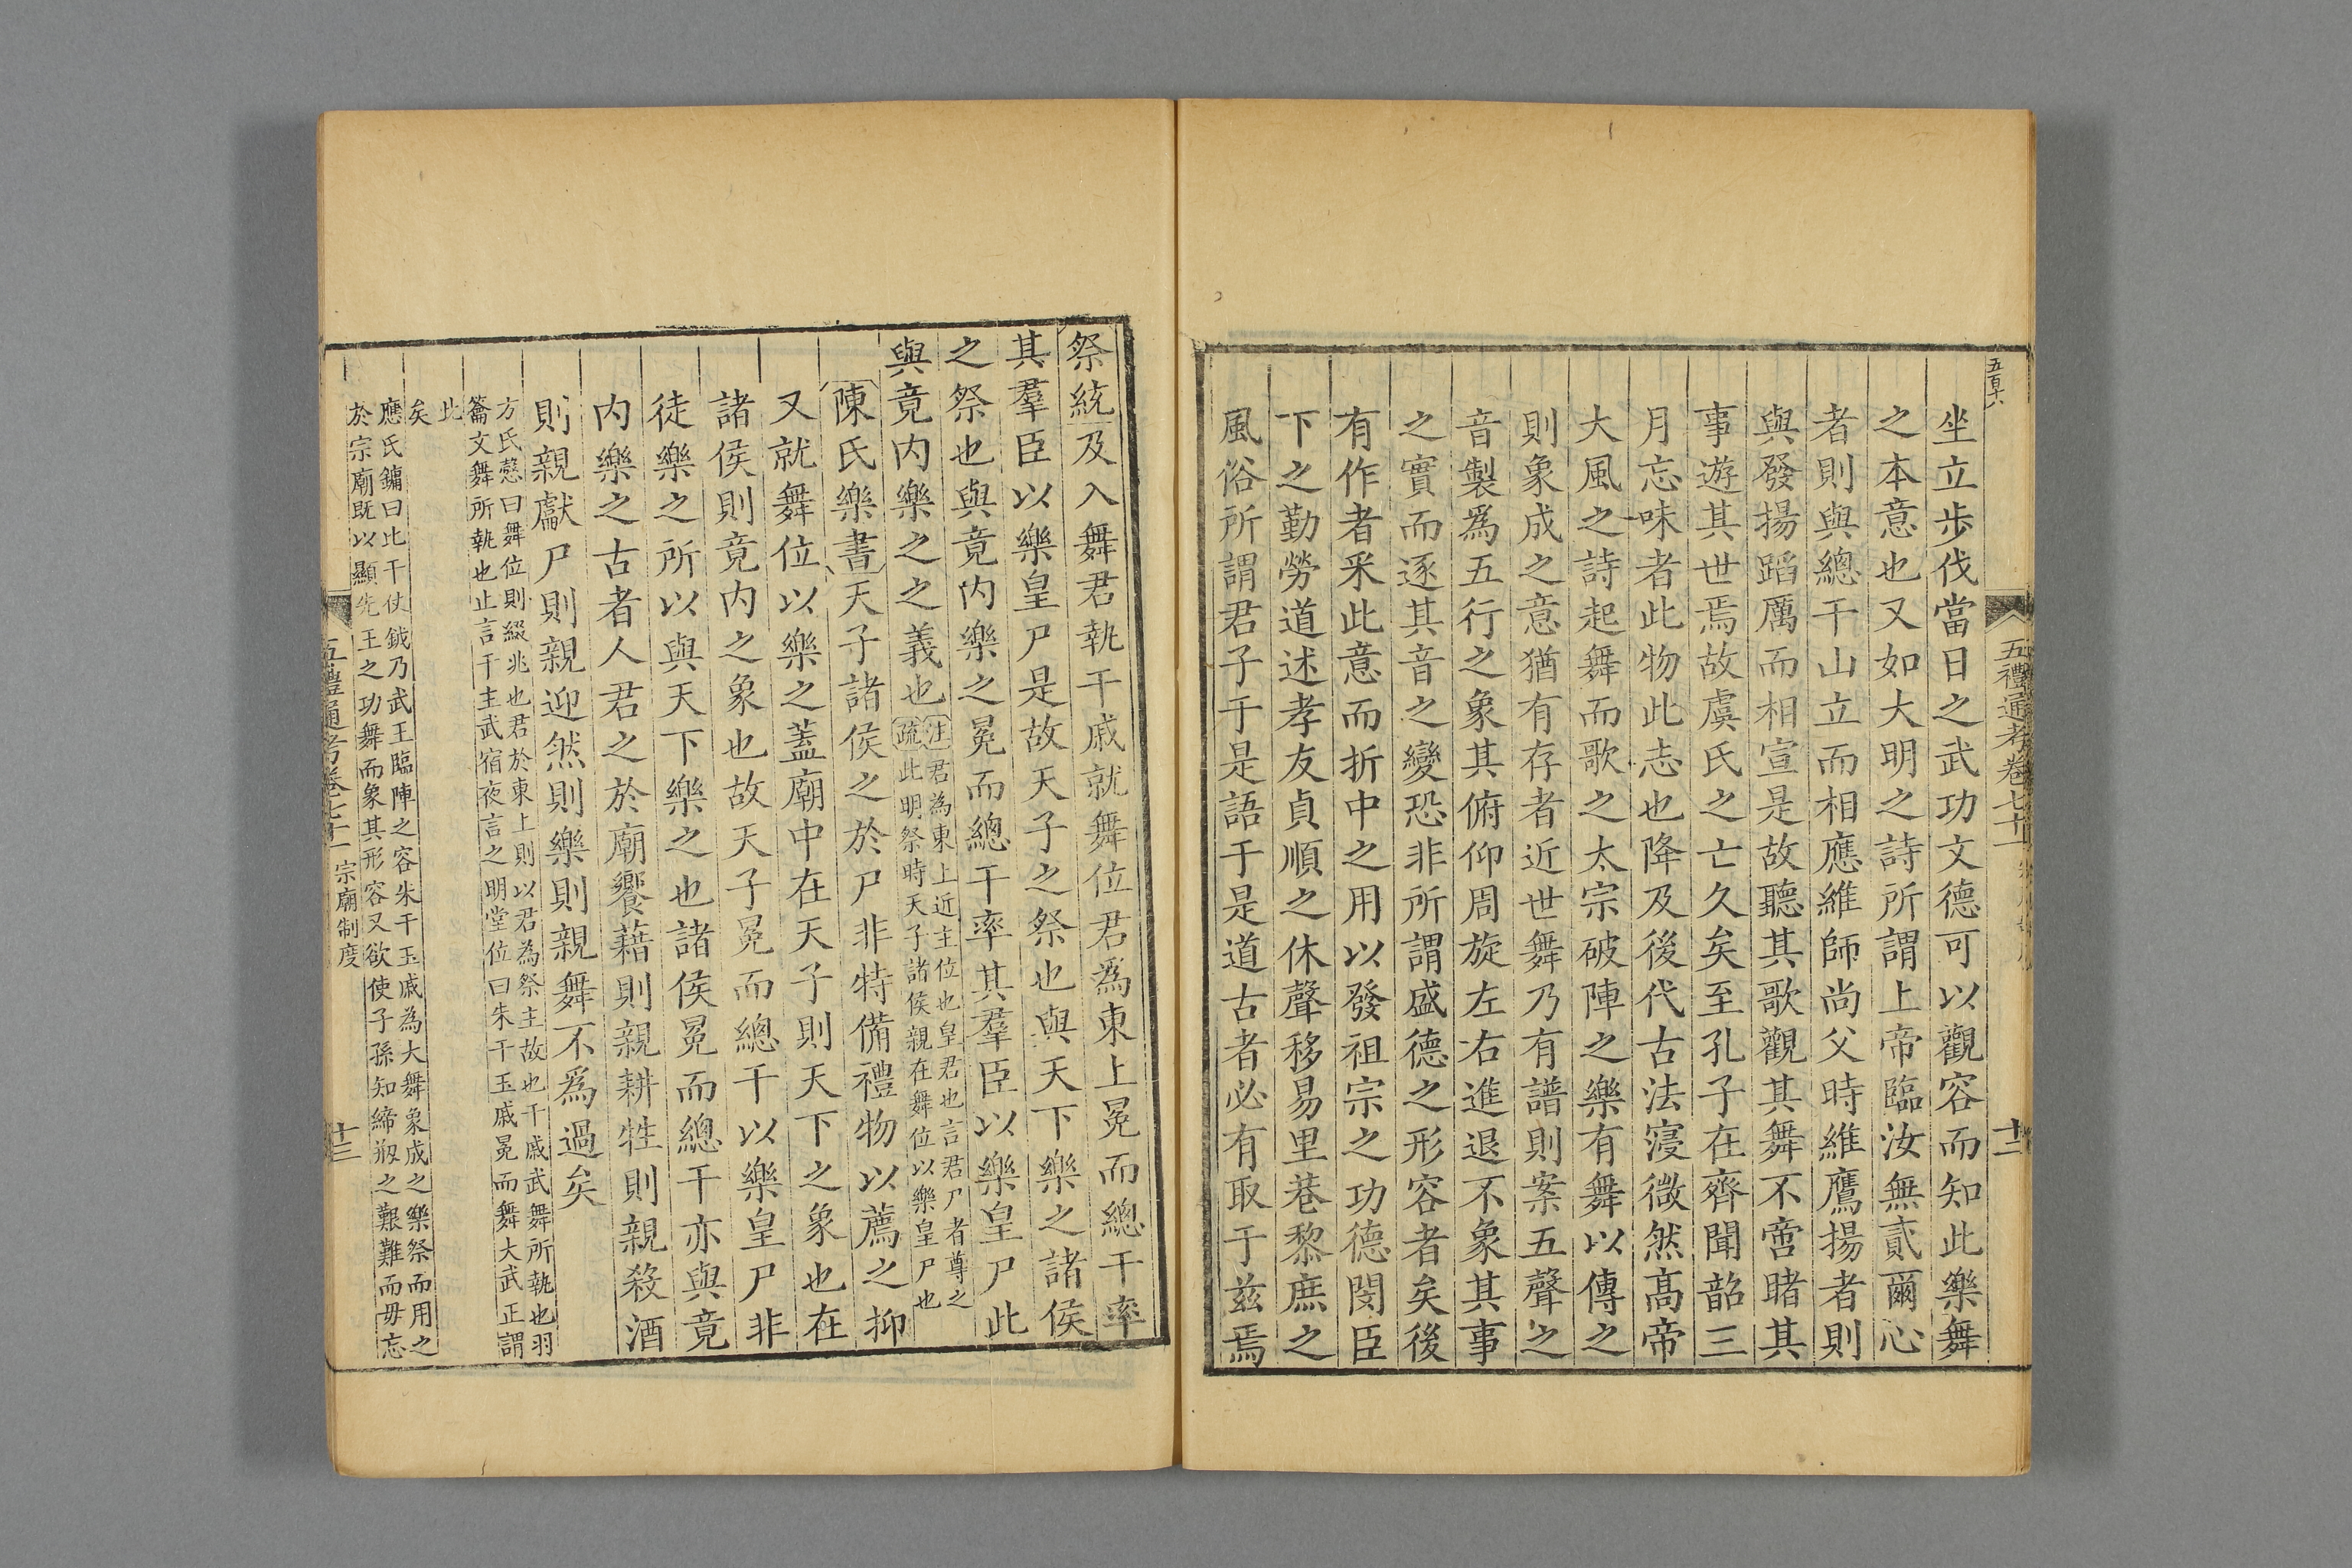 五百十六
五禮通考卷七十一
十二
坐立歩伐當日之武功文德可以觀容而知此樂舞
之本意也又如大明之詩所謂上帝臨汝無貳爾心
者則與總干山立而相應維師尚父時維鷹揚者則
與發揚蹈厲而相宣是故聽其歌觀其舞不啻睹其
事遊其世焉故虞氏之亡久矣至孔子在齊聞韶三
月忘味者此物此志也降及後代古法寖微然高帝
大風之詩起舞而歌之太宗破陣之樂有舞以傳之
則象成之意猶有存者近世舞乃有譜則案五聲之
音製爲五行之象其俯仰周旋左右進退不象其事
之實而逐其音之變恐非所謂盛德之形容者矣後
有作者采此意而折中之用以發祖宗之功德閔臣
下之勤勞道述孝友貞順之休聲移易里巷黎庶之
風俗所謂君子于是語于是道古者必有取于兹焉
祭統及入舞君執干戚就舞位君爲東上冕而總干率
其羣臣以樂皇尸是故天子之祭也與天下樂之諸侯
之祭也與竟内樂之冕而總干率其羣臣以樂皇尸此
與竟内樂之之義也
注君為東上近主位也皇君也言君尸者尊之
疏此明祭時天子諸侯親在舞位以樂皇尸也
陳氏樂書天子諸侯之於尸非特備禮物以薦之抑
又就舞位以樂之蓋廟中在天子則天下之象也在
諸侯則竟内之象也故天子冕而總干以樂皇尸非
徒樂之所以與天下樂之也諸侯冕而總干亦與竟
内樂之古者人君之於廟饗藉則親耕牲則親殺酒
則親獻尸則親迎然則樂則親舞不爲過矣
方氏慤曰舞位則綴兆也君於東上則以君為祭主故也干戚武舞所執也羽
籥文舞所執也止言干主武宿夜言之明堂位曰朱干玉戚冕而舞大武正謂
此
矣
應氏鏞曰此干伎鉞乃武王臨陣之容朱干玉戚為大舞象成之樂祭而用之
於宗廟既以顯先王之功舞而象其形容又欲使子孫知締剏之艱難而毋忘
五禮通考卷七十一 宗廟制度
十三